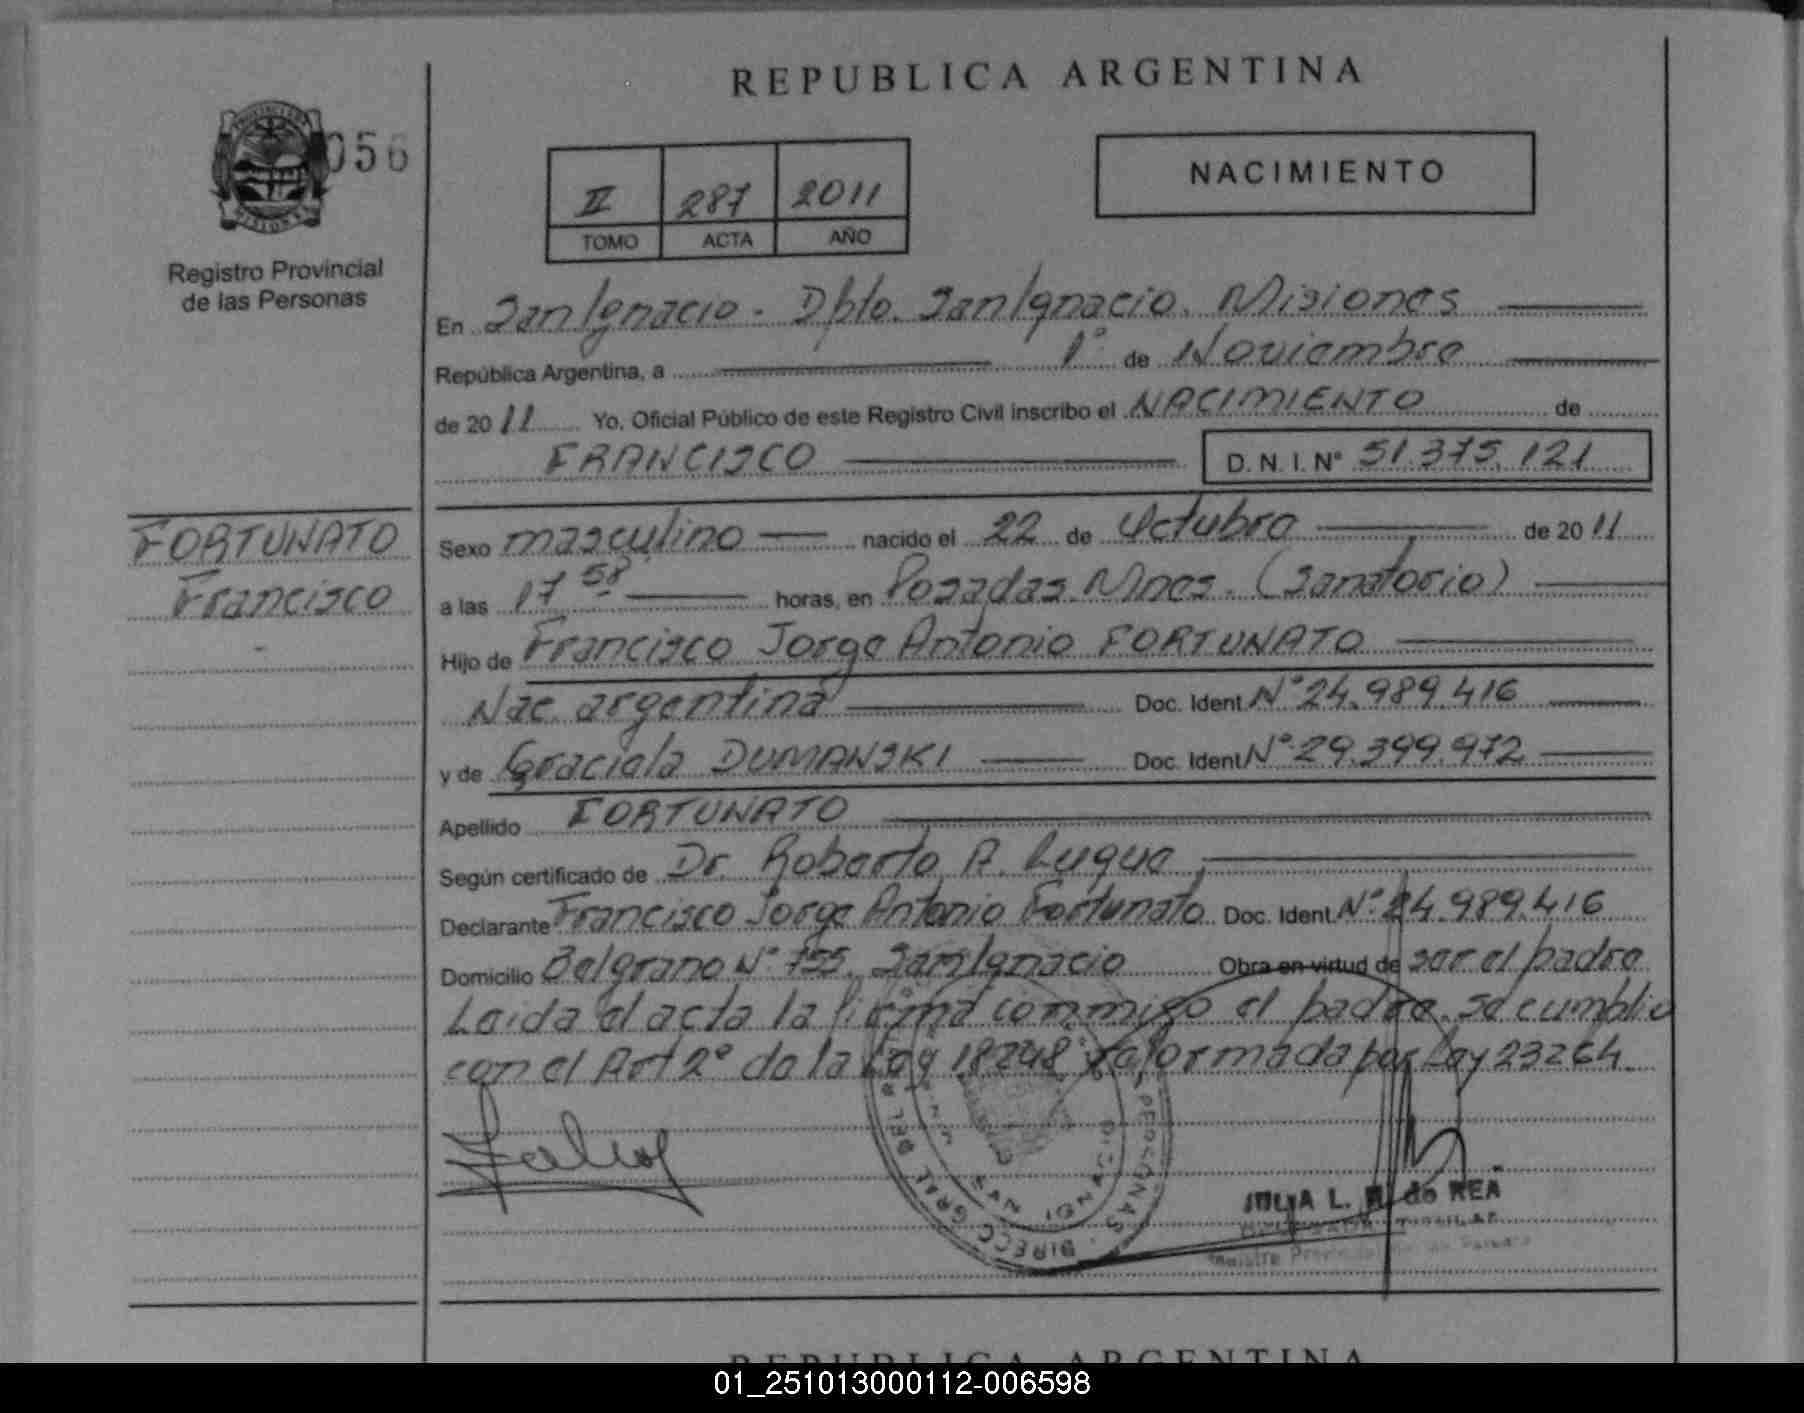 REPUBLICA ARGENTINA
056
NACIMIENTO
II 287 2011
TOMO ACTA AÑO
Registro Provincial
de las Personas
En San Ignacio - Dpto. San Ignacio. Misiones
República Argentina, a 1° de Noviembre
de 2011 Yo. Oficial Público de este Registro Civil inscribo el NACIMIENTO de
FRANCISCO D.N.I. N° 51.375.121
FORTUNATO
Francisco
Sexo masculino nacido el 22 de Octubre de 2011
a las 17 58 horas, en Posadas. Mnes. (Sanatorio)
Hijo de Francisco Jorge Antonio FORTUNATO
Nac. argentina Doc. Ident N° 24.989.416
y de Graciela DUMANSKI Doc. Ident N° 29.399.972
Apellido FORTUNATO
Según certificado de Dr. Roberto A. Luque
Declarante Francisco Jorge Antonio Fortunato Doc. Ident. N° 24.989.416
Domicilio Belgrano N° 755. San Ignacio Obra en virtud de ser el padre
Leida el acta la firma conmigo el padre. se cumplio
con el Art 2° de la Ley 18248 reformada por Ley 23264.
PERSONAS - DIRECC. GRAL. DEL
JULIA L. de REA
Registro Provincial
REPUBLICA ARGENTINA
01_251013000112-006598